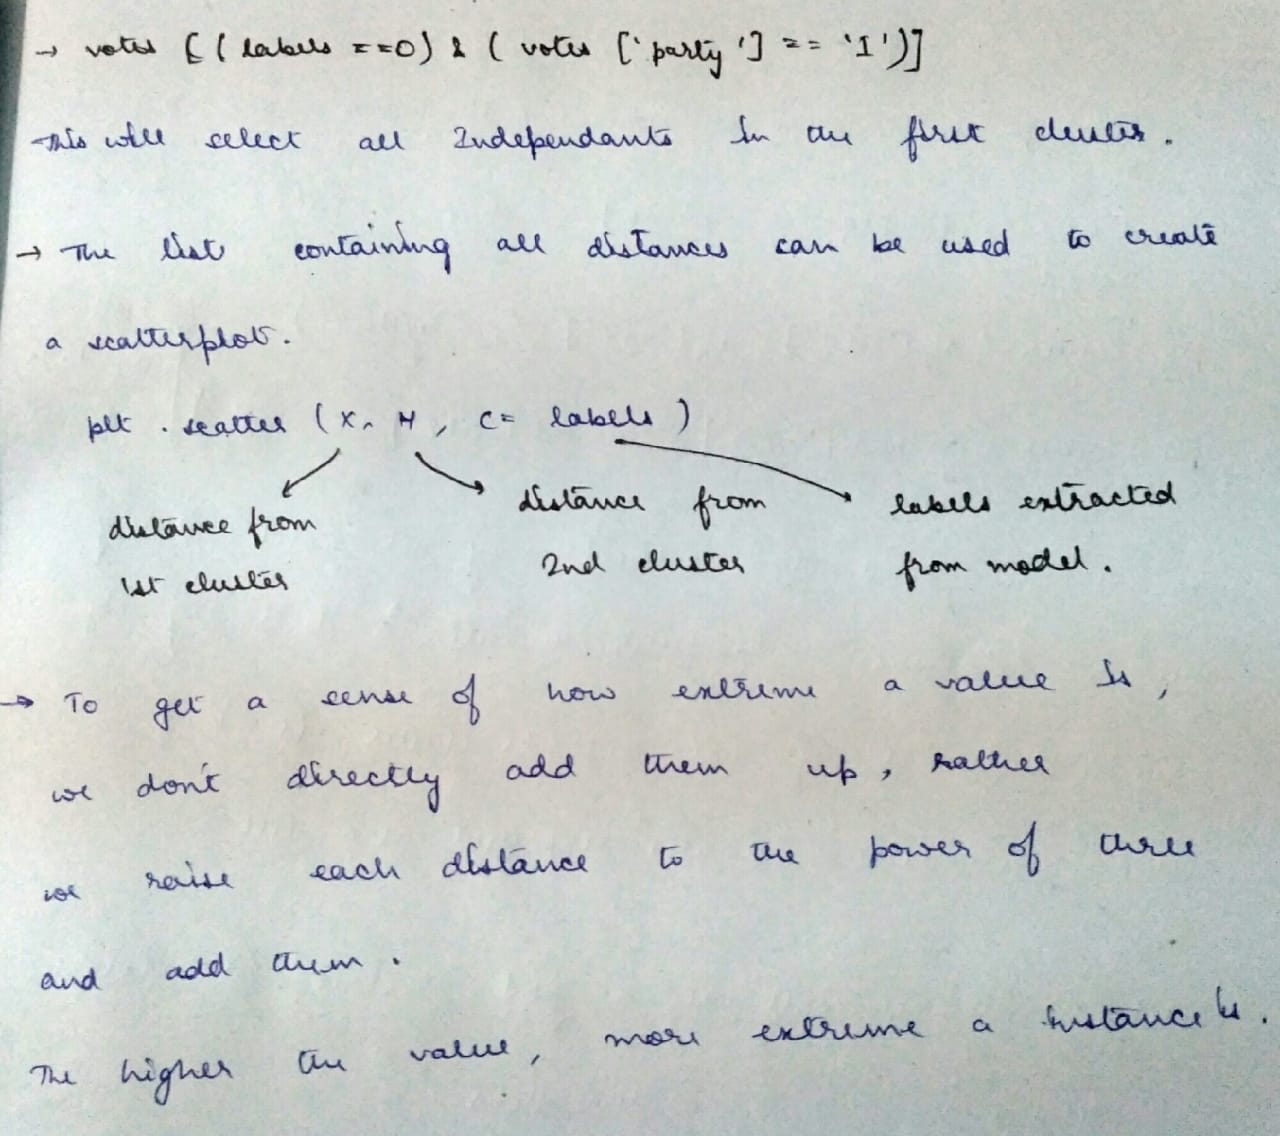 → votes [(labels ==0) & ( votes ['party'] == 'I')]
This will select all Independants in the first cluster.
→ The list containing all distances can be used to create
a scatterplot.
plt . scatter ( x, y, c= labels )
distance from distance from labels extracted
1st cluster 2nd cluster from model.
→ To get a sense of how extreme a value is,
we don't directly add them up, rather
we raise each distance to the power of three
and add them.
The higher the value, more extreme a instance is.